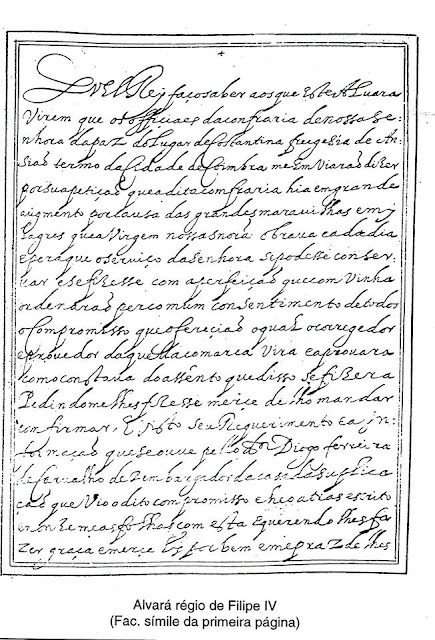 Eu El Rey faço saber aos que este Aluara
Virem que os officiaes da confraria de nossa Se-
nhora da paz do Lugar de Costantina freguesia de An-
sião termo da Cidade de Coimbra me enViarão diZer
por sua petição que a dita comfraria hia em grande
augmento por causa das grandes marauilhas e mi-
lagres que a Virgem nossa snora obraua cada dia
e pera que o seruiço da senhora se podesse conser-
uar e se fiZesse com a perfeição que comVinha
ordenarão per comum consentimento de todos
o Compromisso que offereçião o qual o corregedor
e prouedor daquella comarca Vira e aprouara
como constaua do assento que disso se fiZera
Pedindome lhes fiZesse merçe de lho mandar
confirmar, E Visto seu Requerimento e a in-
formação que se ouue pello Dor Diogo ferreira
de Carualho deZembargador da casa da suplica
ção que Vio o dito compromisso e he o atras escrito
em onZe meas folhas com esta E querendo lhes fa
Zer graça e merçe Ey por bem e me praZ de lhes
Alvará régio de Filipe IV
(Fac. símile da primeira página)